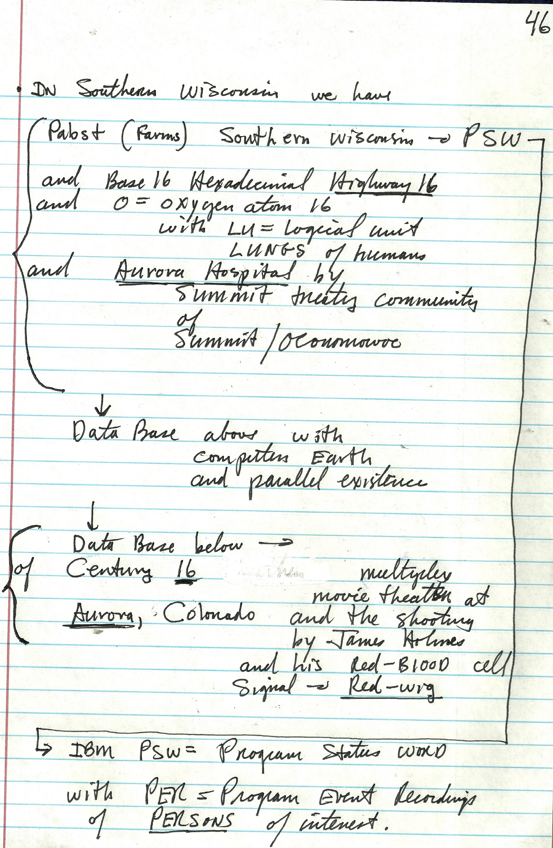 46
• IN Southern Wisconsin we have
Pabst (Farms) Southern Wisconsin → PSW
and Base 16 Hexadecimal Highway 16
and O = Oxygen atom 16
with LU = Logical unit
LUNGS of humans
and Aurora Hospital by
Summit treaty community
of
Summit / Oconomowoc
↓
Data Base above with
computers Earth
and parallel existence
↓
Data Base below →
of Century 16 multiplex
movie theater at
Aurora, Colorado and the shooting
by James Holmes
and his Red-BLOOD cell
Signal → Red-wig
↳ IBM PSW = Program Status WORD
with PER = Program Event Recordings
of PERSONS of interest.